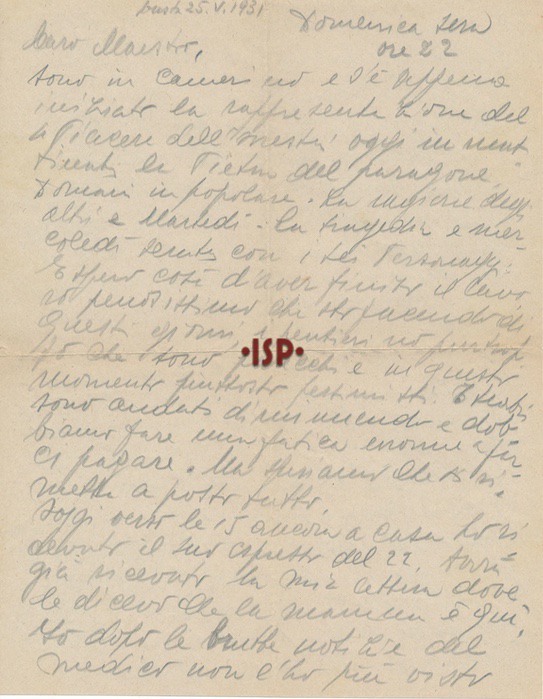 busta 25.V.1931
Domenica sera
ore 22
Caro Maestro,
sono in camerino e s'è appena
iniziata la rappresentazione del
"Piacere dell'onestà, oggi in mat
tinata la Pietra del paragone
Domani in popolare. La ragione degli
altri e Martedì. La tragedia e mer-
coledì serata con i Sei Personaggi.
E spero così d'aver finito il lavo
ro penosissimo che sto facendo di
questi giorni, i pensieri
ciò che sono parecchi e in questo
momento piuttosto
sono andati di un mondo e dob
biamo fare una fatica enorme a far
ci pagare. Ma speriamo che si ri-
metta a posto tutto.
Oggi verso le 15 ancora a casa ho ri
cevuto il suo espresso del 22. Avrà
già ricevuto la mia lettera dove
le dicevo che la mamma è qui.
Io dopo le brutte notizie del
medico non l'ho più visto
•ISP•